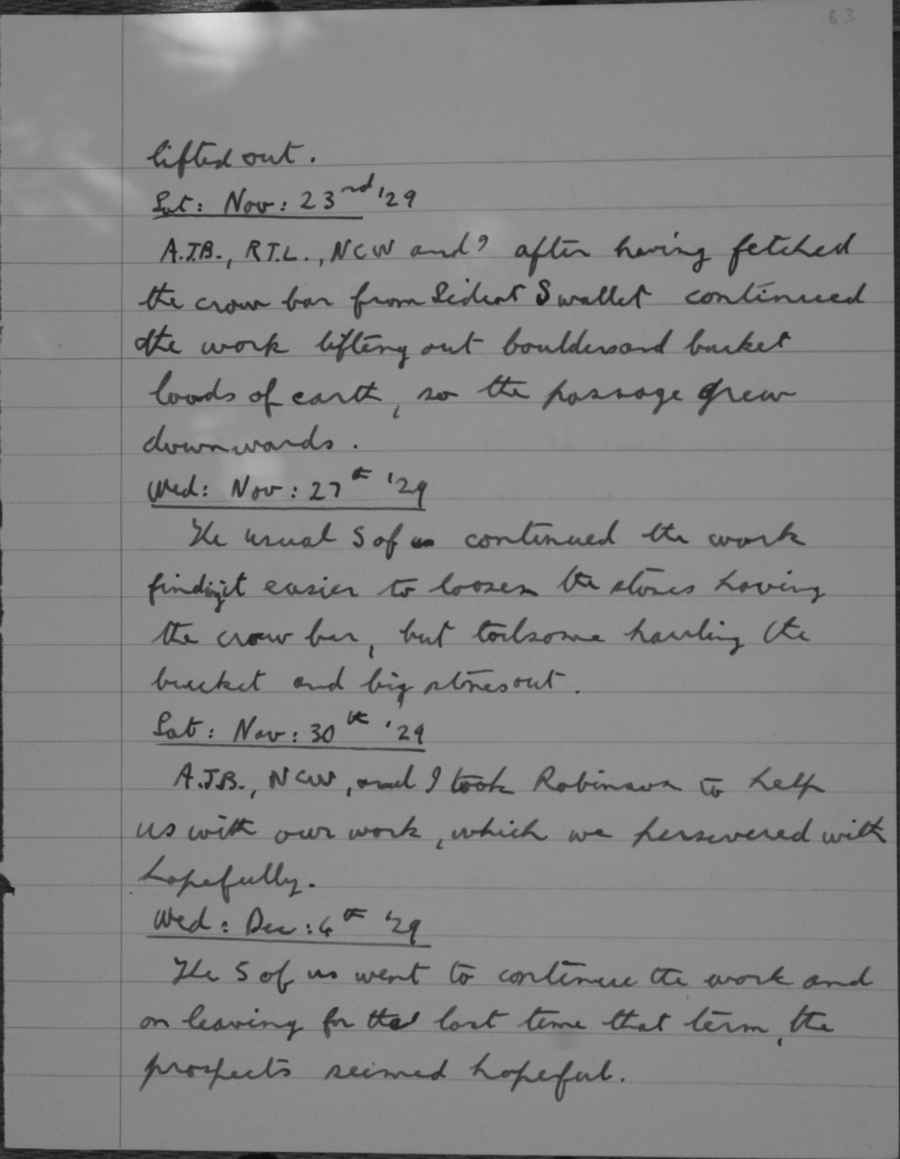 63
lifted out.
Sat: Nov: 23rd '29
A.J.B., R.T.L., NCW and I after having fetched
the crow bar from Sidcot Swallet continued
the work lifting out boulders and bucket
loads of earth, so the passage grew
downwards.
Wed: Nov: 27th '29
The usual 5 of us continued the work
finding it easier to loosen the stones having
the crow bar, but toilsome hauling the
bucket and big stones out.
Sat: Nov: 30th '29
A.J.B., NCW, and I took Robinson to help
us with our work, which we persevered with
hopefully.
Wed: Dec: 4th '29
The 5 of us went to continue the work and
on leaving for the last time that term, the
prospects seemed hopeful.